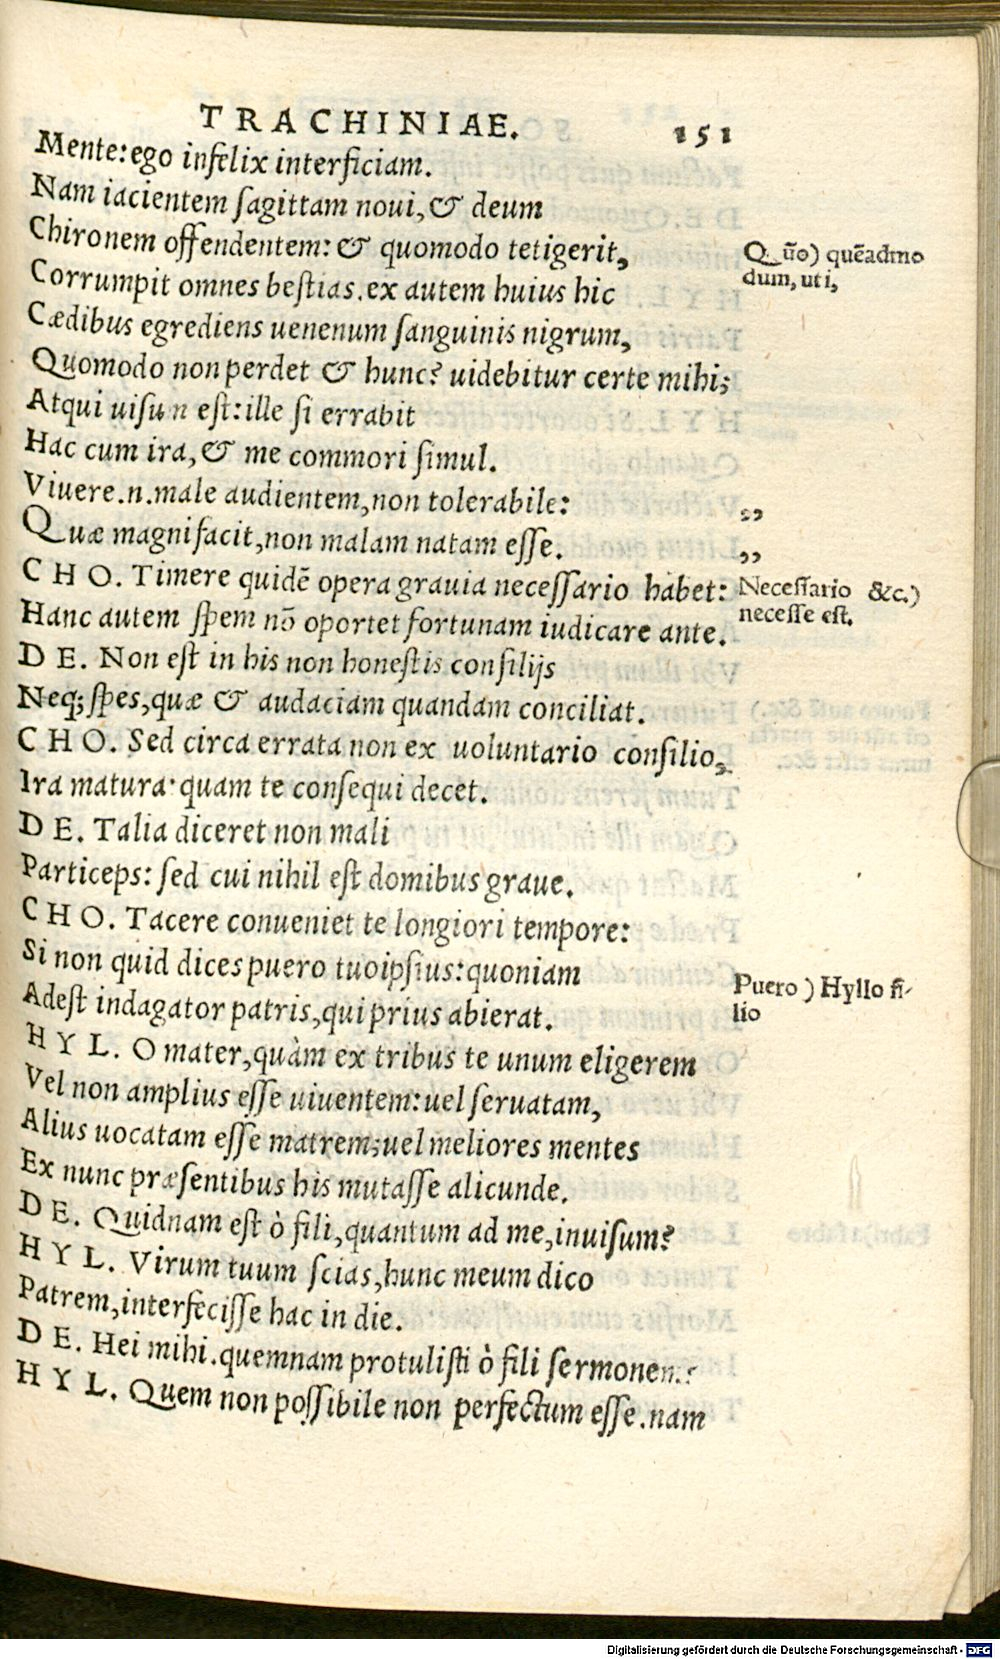 TRACHINIAE. 151
Mente: ego infelix interficiam.
Nam iacientem sagittam noui, & deum
Chironem offendentem: & quomodo tetigerit,
Q_ũo) quẽadmo
dum, uti,
Corrumpit omnes bestias. ex autem huius hic
Cædibus egrediens uenenum sanguinis nigrum,
Quomodo non perdet & hunc? uidebitur certe mihi;
Atqui uisum est: ille si errabit
Hac cum ira, & me commori simul.
Viuere .n. male audientem, non tolerabile: ,,
Quæ magnifacit, non malam natam esse. ,,
CHO. Timere quidẽ opera grauia necessario habet:
Necessario &c.)
necesse est.
Hanc autem spem nõ oportet fortunam iudicare ante.
DE. Non est in his non honestis consilijs
Neq; spes, quæ & audaciam quandam conciliat.
CHO. Sed circa errata non ex uoluntario consilio,
Ira matura: quam te consequi decet.
DE. Talia diceret non mali
Particeps: sed cui nihil est domibus graue.
CHO. Tacere conueniet te longiori tempore:
Si non quid dices puero tuoipsius: quoniam
Puero) Hyllo fi-
lio
Adest indagator patris, qui prius abierat.
HYL. O mater, quàm ex tribus te unum eligerem
Vel non amplius esse uiuentem: uel seruatam,
Alius uocatam esse matrem; uel meliores mentes
Ex nunc præsentibus his mutasse alicunde.
DE. Quidnam est ò fili, quantum ad me, inuisum?
HYL. Virum tuum scias, hunc meum dico
Patrem, interfecisse hac in die.
DE. Hei mihi. quemnam protulisti ò fili sermonem?
HYL. Quem non possibile non perfectum esse. nam
Digitalisierung gefördert durch die Deutsche Forschungsgemeinschaft - DFG